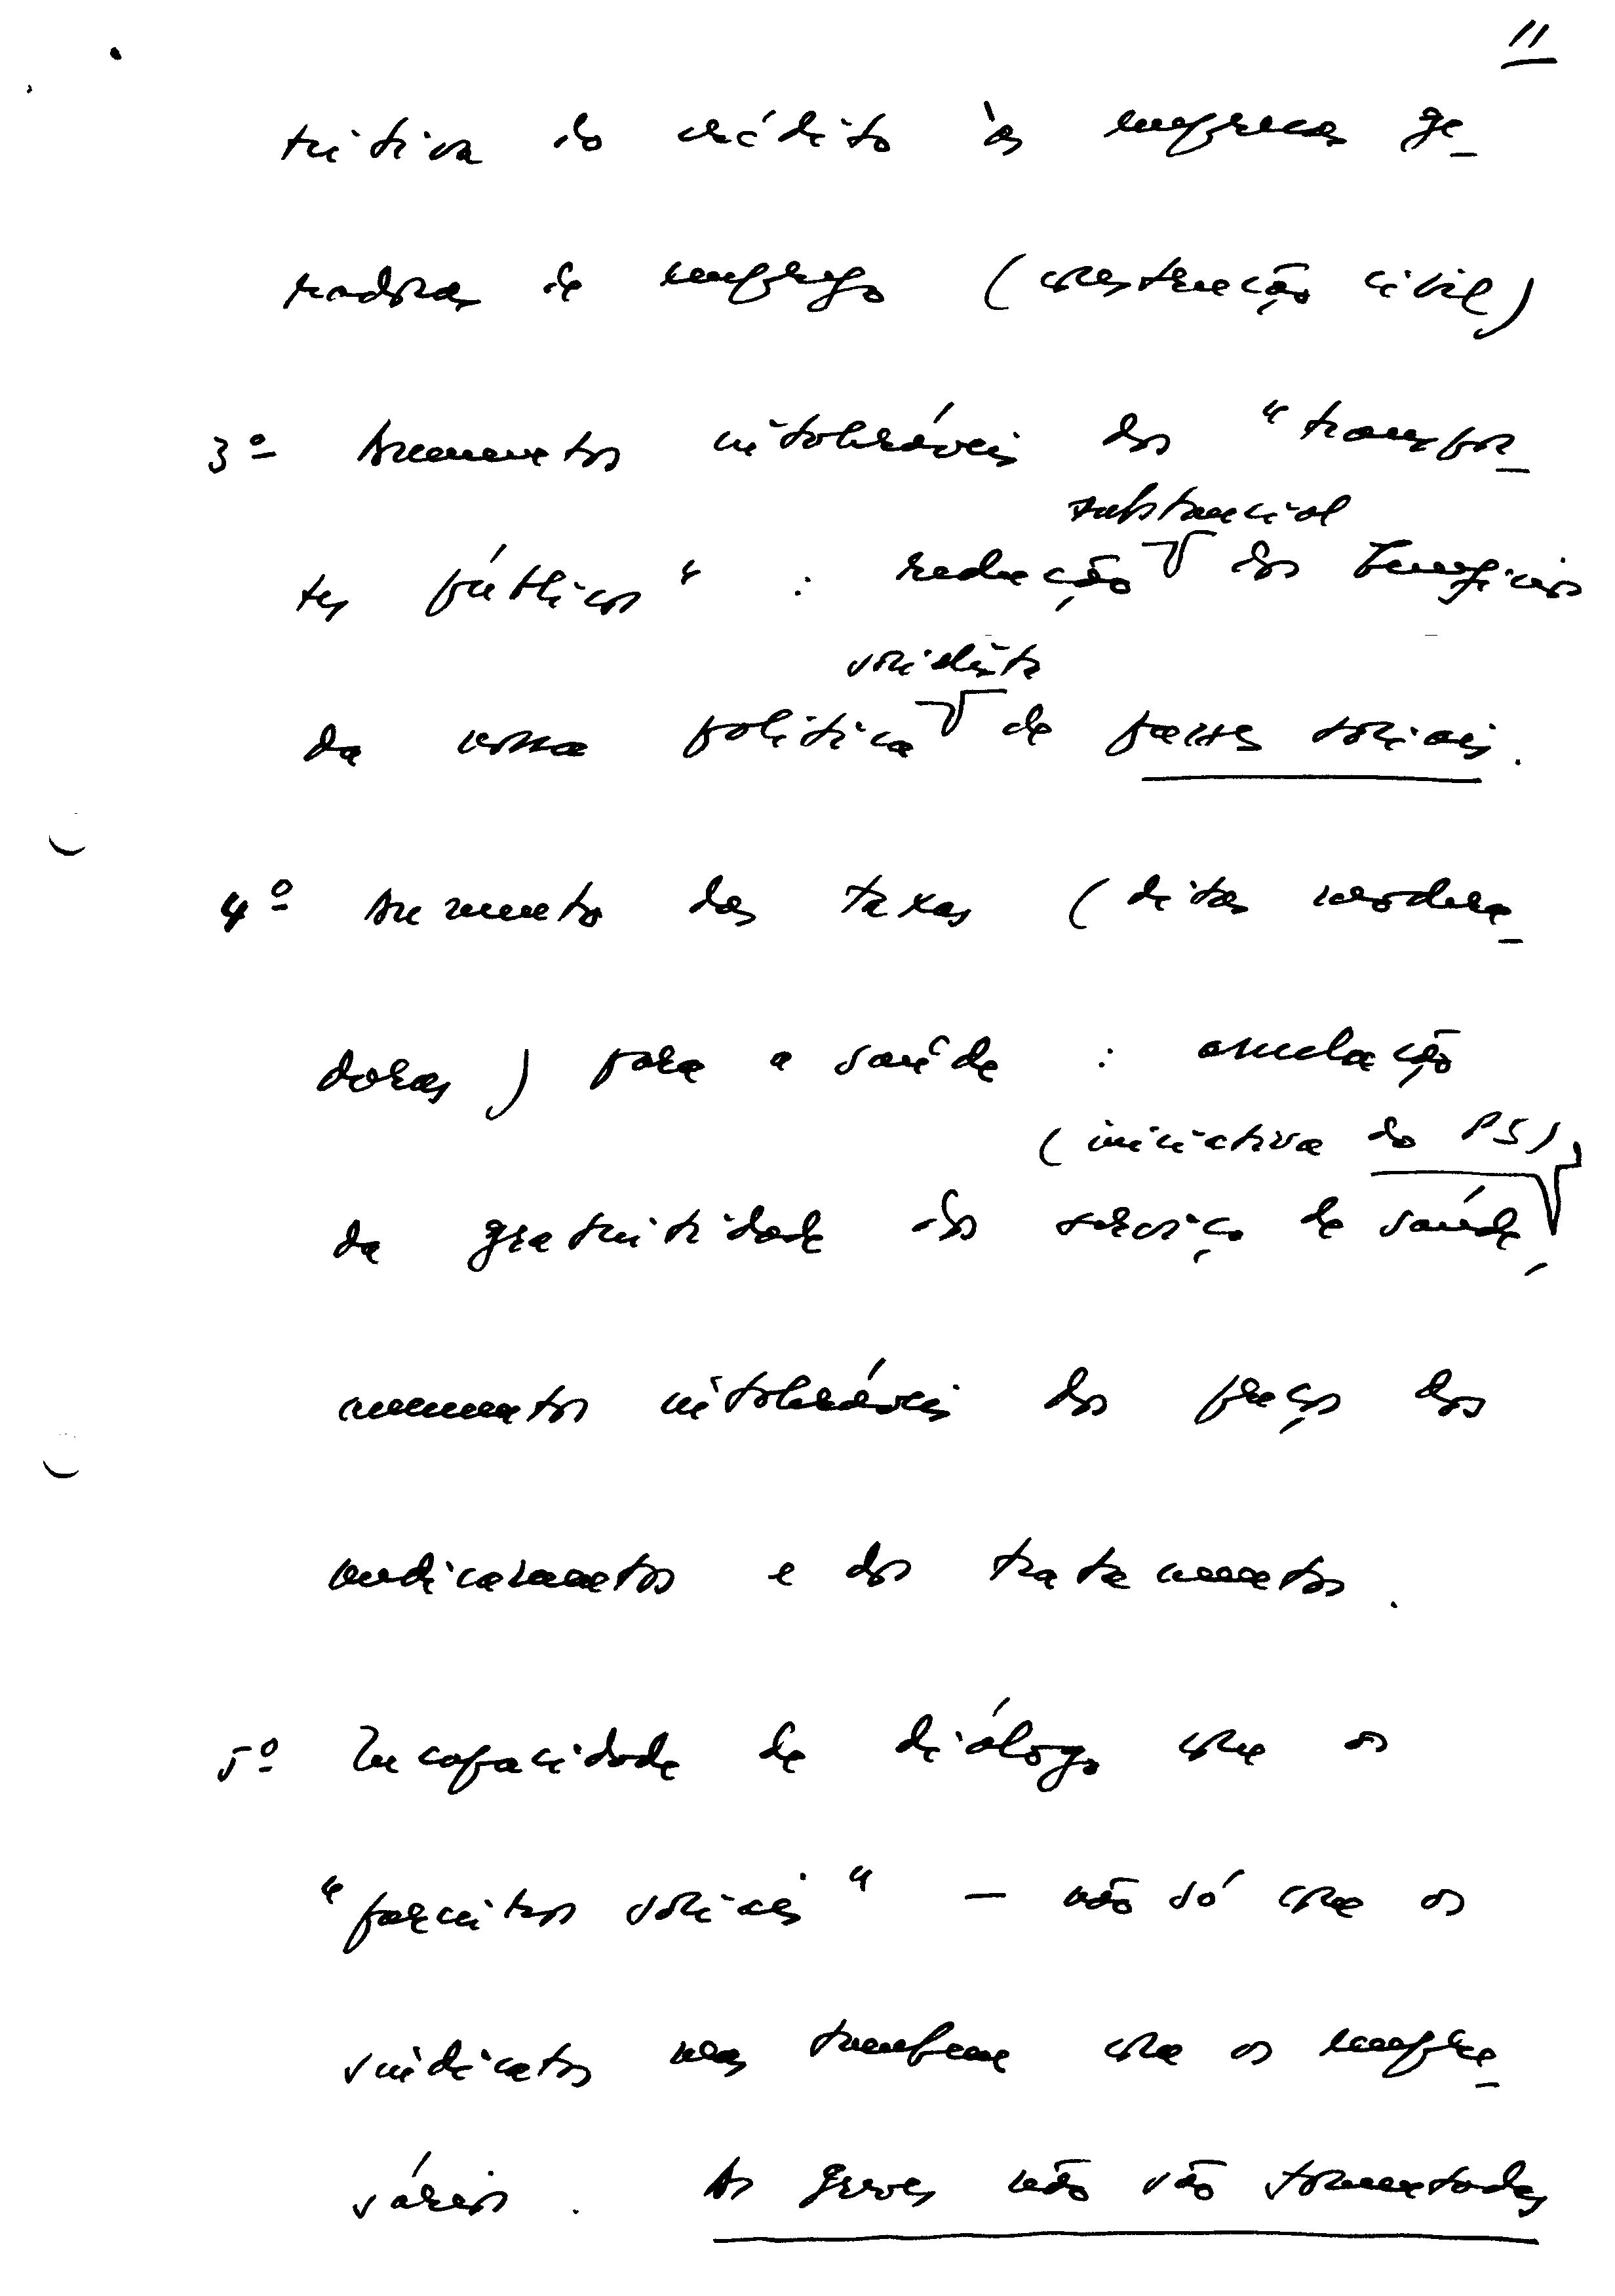 11
tritiva do crédito às empresas ge-
radoras de emprego (construção civil)
3º Aumentos intoleráveis dos "transpor-
substancial
tes públicos" : redução dos benefícios
solidária
da nossa política de passes sociais.
4º Aumento das taxas (ditas modera-
doras) para a saúde : anulação
(iniciativa do PS),
da gratuitidade dos serviços de saúde,
aumentos intoleráveis dos preços dos
medicamentos e dos tratamentos.
5º Incapacidade de diálogo com os
"parceiros sociais" - não só com os
sindicatos mas também com os empre-
sários. As greves não são fomentadas